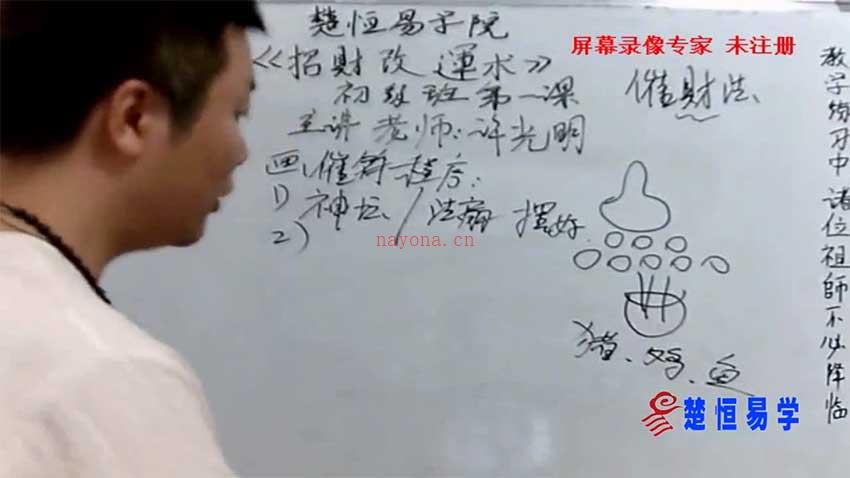 楚恒易学院
《招财改運水》
初级班第一课
主讲老师:许光明
四、催财程序:
1) 神坛/法庙 摆好
2)
催财法
猪、鸡、鱼
教学练习中诸位祖師不必降临
屏幕录像专家 未注册
nayona.cn
楚恒易学